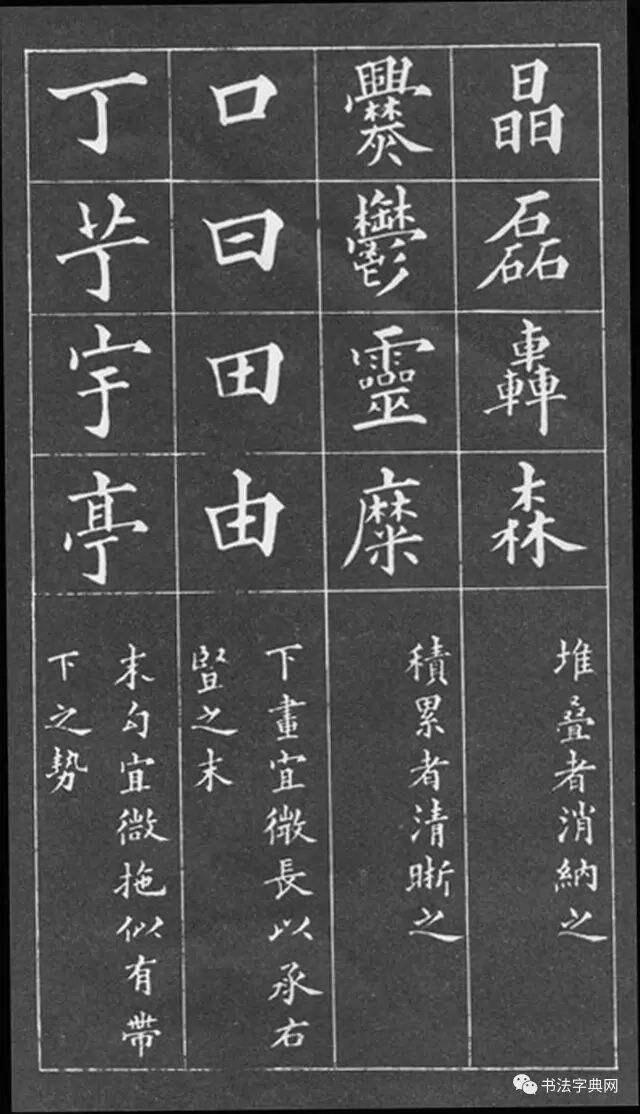 晶磊轟森
堆叠者消納之
爨鬱靈糜
積累者清晰之
口曰田由
下畫宜微長以承右
豎之末
丁芋宇亭
末勾宜微拖似有帶
下之勢
书法字典网